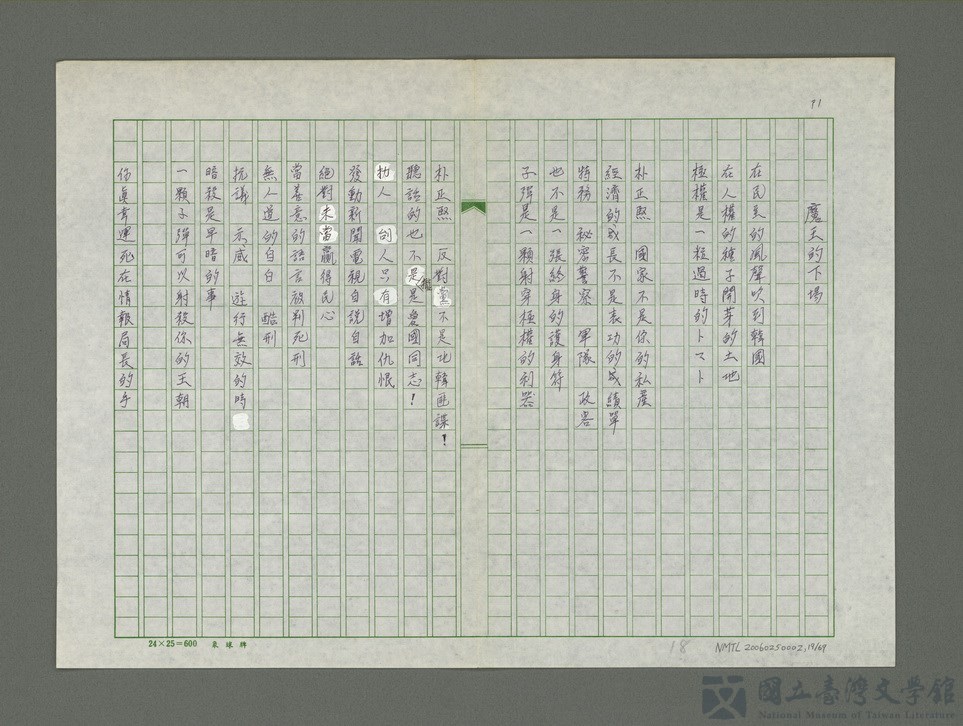 71
魔王的下場
在民主的風聲吹到韓國
在人權的種子開芽的土地
極權是一粒過時的卜マト
朴正熙 國家不是你的私產
經濟的成長不是表功的成績單
特務 秘密警察 軍隊 政客
也不是一張終身的護身符
子彈是一顆射穿極權的利器
朴正熙 反對黨不是北韓匪諜!
聽話的也不是是愛國同志!
抓人 刣人只有增加仇恨
發動新聞電視自說自話
絕對未當贏得民心
當善意的語言被判死刑
無人道的自白 酷刑
抗議 示威 遊行無效的時
暗殺是早暗的事
一顆子彈可以射殺你的王朝
你真幸運死在情報局長的手
24×25=600
18
NMTL 20060250002, 19/69
國立臺灣文學館
National Museum of Taiwan Literature